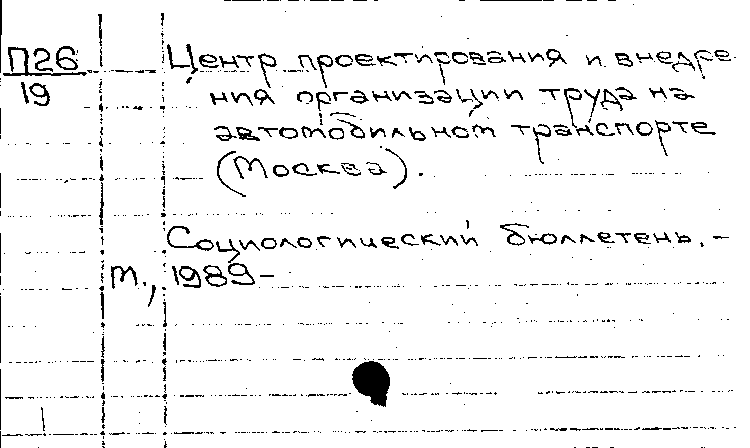 П26 Центр проектирования и внедре
19 ния организации труда на
автомобильном транспорте
(Москва).
Социологический бюллетень, -
М., 1989-